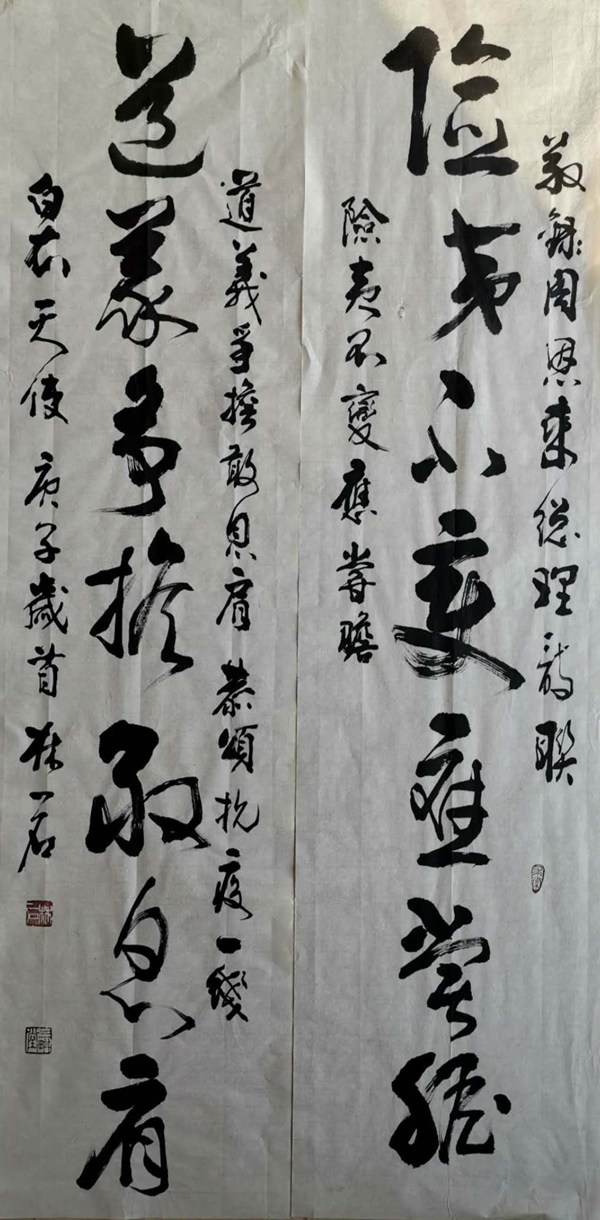 敬錄周恩来總理詩聯
险夷不变应尝胆
險夷不變應嘗瞻
道義爭擔敢息肩 恭頌抗疫一綫
道義争擔敢息肩
白衣天使 庚子歲首 林一石